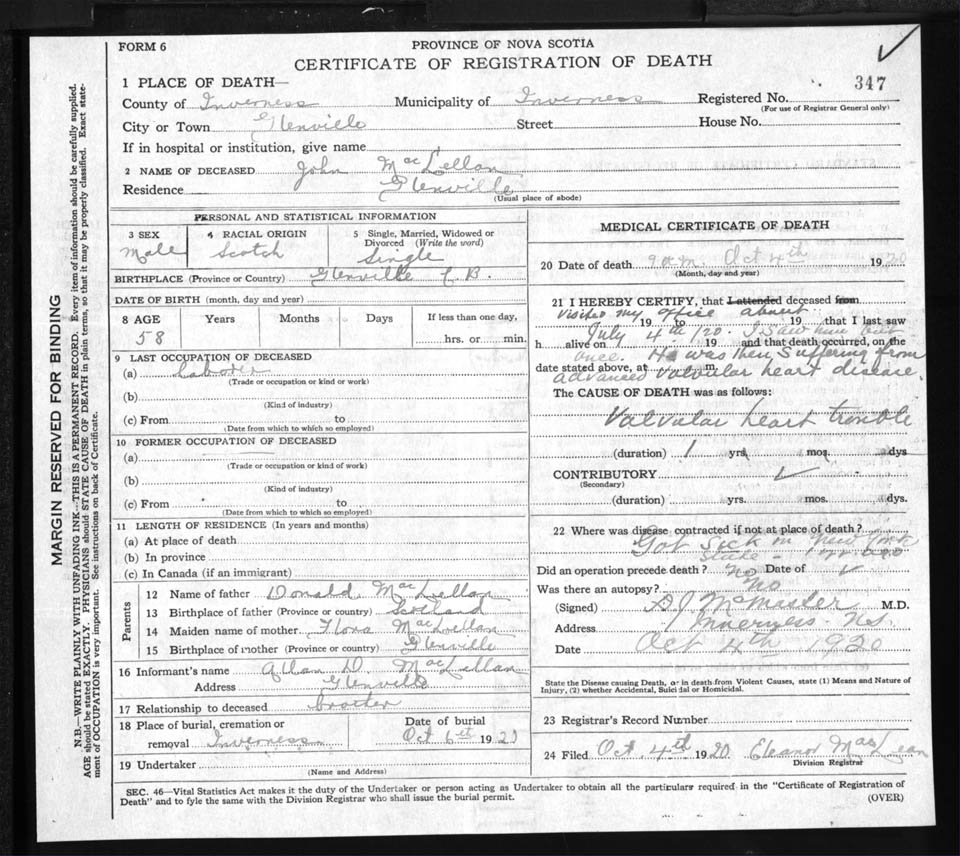 FORM 6
PROVINCE OF NOVA SCOTIA
CERTIFICATE OF REGISTRATION OF DEATH
1 PLACE OF DEATH—
347
County of Inverness Municipality of Inverness Registered No.
(For use of Registrar General only)
City or Town Glenville Street House No.
If in hospital or institution, give name
2 NAME OF DECEASED John MacLellan
Residence Glenville
(Usual place of abode)
PERSONAL AND STATISTICAL INFORMATION
3 SEX
Male
4 RACIAL ORIGIN
Scotch
5 Single, Married, Widowed or
Divorced (Write the word)
Single
BIRTHPLACE (Province or Country) Glenville C. B.
DATE OF BIRTH (month, day and year)
8 AGE Years Months Days If less than one day,
58 hrs. or min.
9 LAST OCCUPATION OF DECEASED
(a) Laborer
(Trade or occupation or kind or work)
(b)
(Kind of industry)
(c) From to
(Date from which to which so employed)
10 FORMER OCCUPATION OF DECEASED
(a)
(Trade or occupation or kind of work)
(b)
(Kind of industry)
(c) From to
(Date from which to which so employed)
11 LENGTH OF RESIDENCE (In years and months)
(a) At place of death
(b) In province
(c) In Canada (if an immigrant)
Parents
12 Name of father Donald MacLellan
13 Birthplace of father (Province or country) Scotland
14 Maiden name of mother Flora MacLellan
15 Birthplace of mother (Province or country) Glenville
16 Informant's name Allan D. MacLellan
Address Glenville
17 Relationship to deceased brother
18 Place of burial, cremation or
removal Inverness
Date of burial
Oct 6th 1920
19 Undertaker
(Name and Address)
MEDICAL CERTIFICATE OF DEATH
20 Date of death 9 a.m. Oct 4th 1920
(Month, day and year)
21 I HEREBY CERTIFY, that I attended deceased from
visited my office about
19 to 19 that I last saw
July 4th /20. I saw him but
h alive on 19 and that death occurred, on the
once. He was then suffering from
date stated above, at m
advanced valvular heart disease.
The CAUSE OF DEATH was as follows:
Valvular heart trouble
(duration) 1 yrs mos. dys
CONTRIBUTORY
(Secondary)
(duration) yrs. mos. dys.
22 Where was disease contracted if not at place of death?
Got sick in New York
State
Did an operation precede death? No Date of
Was there an autopsy? No
(Signed) McMaster M.D.
Address Inverness N.S.
Date Oct 4th 1920
State the Disease causing Death, or in death from Violent Causes, state (1) Means and Nature of
Injury, (2) whether Accidental, Suicidal or Homicidal.
23 Registrar's Record Number
24 Filed Oct. 4th 1920 Eleanor MacLean
Division Registrar
SEC. 46—Vital Statistics Act makes it the duty of the Undertaker or person acting as Undertaker to obtain all the particulars required in the "Certificate of Registration of
Death" and to fyle the same with the Division Registrar who shall issue the burial permit.
(OVER)
MARGIN RESERVED FOR BINDING
N.B.—WRITE PLAINLY WITH UNFADING INK—THIS IS A PERMANENT RECORD. Every item of information should be carefully supplied.
AGE should be stated EXACTLY. PHYSICIANS should STATE CAUSE OF DEATH in plain terms, so that it may be properly classified. Exact state-
ment of OCCUPATION is very important. See instructions on back of Certificate.